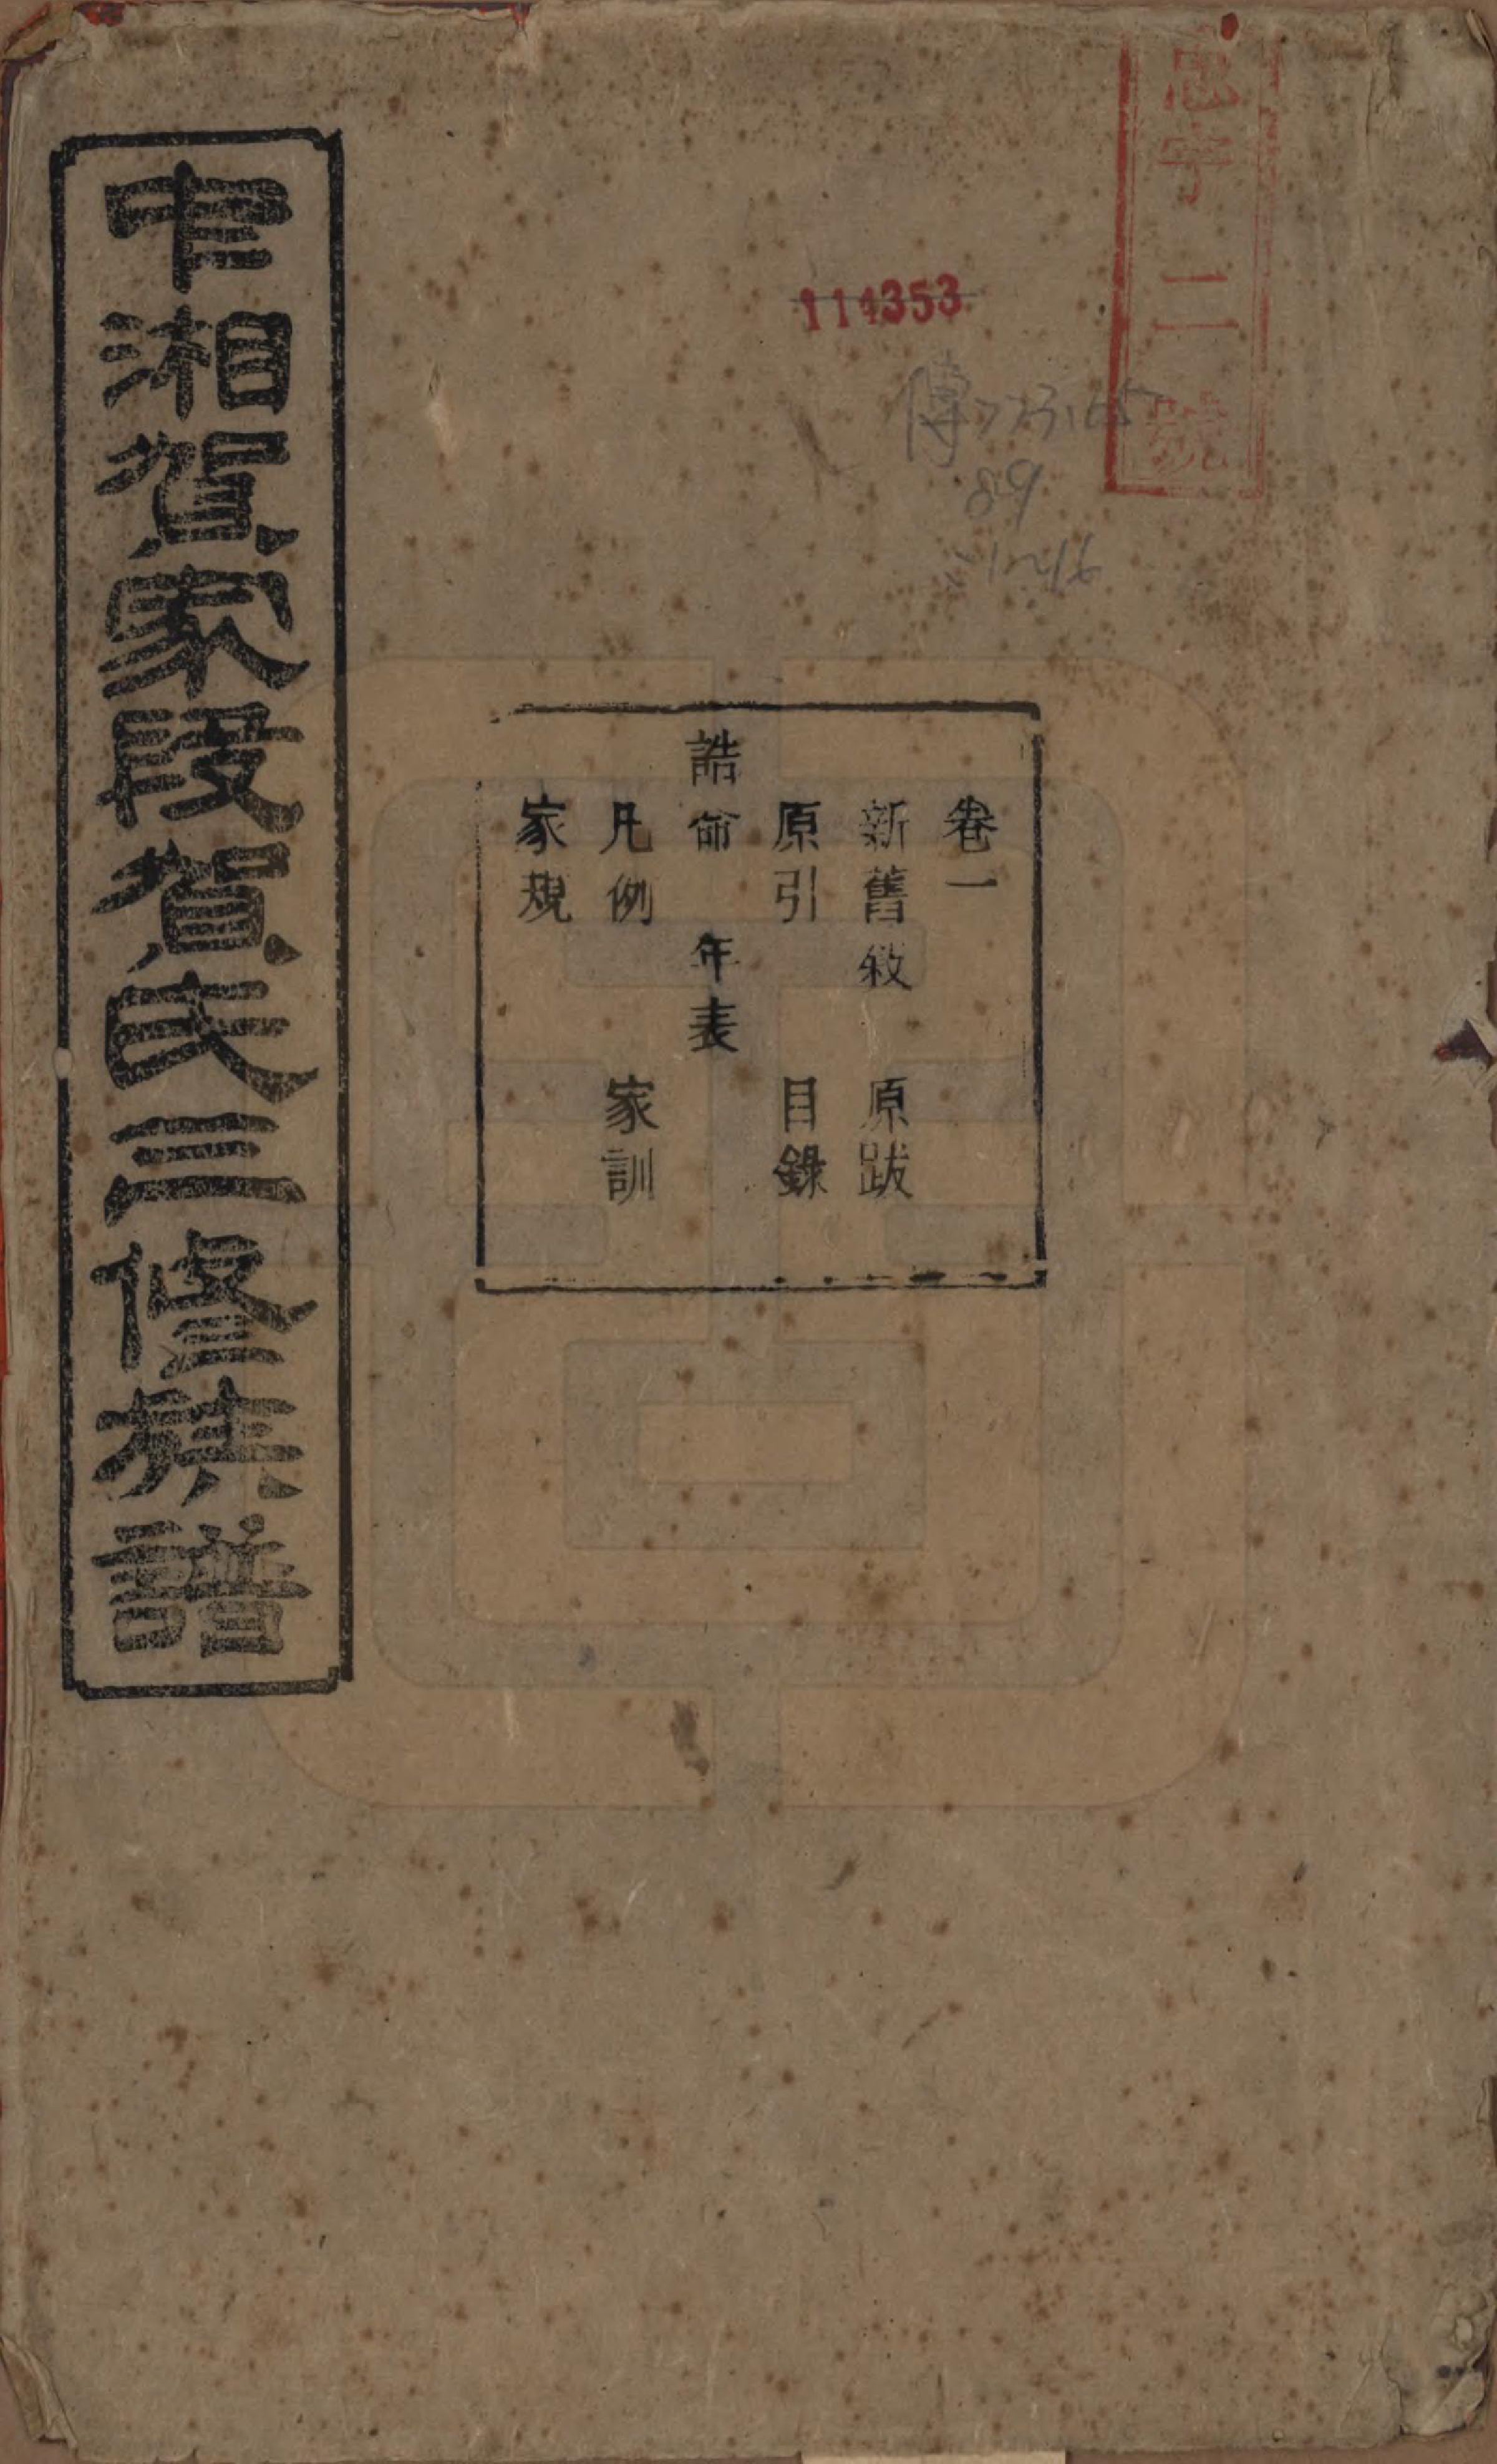 忠字二號
114353
傳773.165
89
:1~16
卷一
新舊敘 原跋
原引 目錄
誥命 年表
凡例 家訓
家規
中湘賀家段賀氏三修族譜